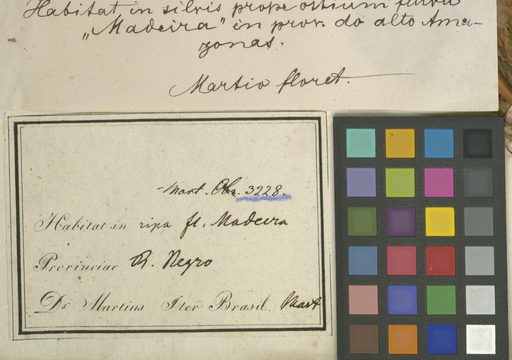 Habitat in silvis prope ostium fluvii
„Madeira" in prov. do alto Ama-
zonas.
Martio floret.
Mart. Obs. 3228.
Habitat in ripa fl. Madeira
Provinciae R. Negro
Dr Martius Iter Brasil. Mart